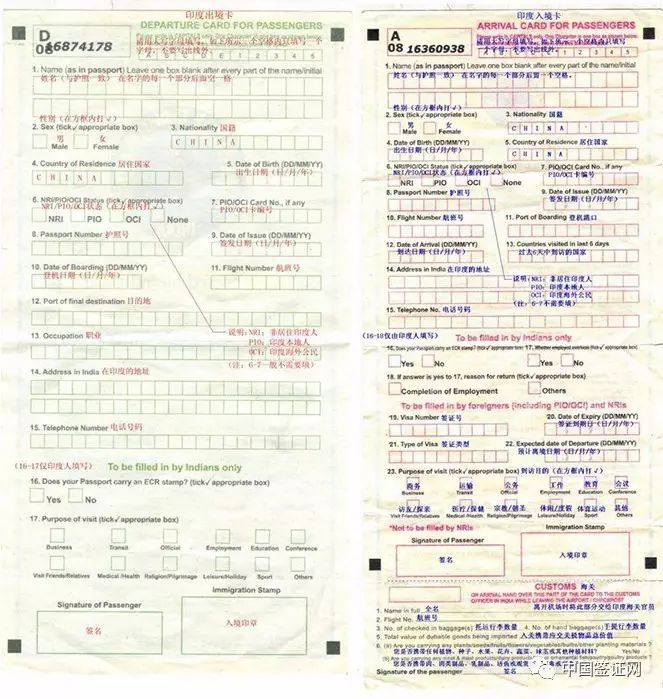 印度出境卡
DEPARTURE CARD FOR PASSENGERS
D
08
16874178
1. Name (as in passport) Leave one box blank after every part of the name/initial
姓名（与护照一致） 在名字的每一个部分后面空一格
性别（在方框内打√）
2. Sex (tick✓appropriate box)
男 女
Male Female
3. Nationality 国籍
CHINA
4. Country of Residence 居住国家
CHINA
5. Date of Birth (DD/MM/YY)
出生日期（日/月/年）
6. NRI/PIO/OCI Status (tick✓appropriate box)
NRI/PIO/OCI状态（在方框内打√）
NRI PIO OCI None
7. PIO/OCI Card No., if any
PIO/OCI卡编号
8. Passport Number 护照号
9. Date of Issue (DD/MM/YY)
签发日期（日/月/年）
10. Date of Boarding (DD/MM/YY)
登机日期（日/月/年）
11. Flight Number 航班号
12. Port of final destination 目的地
13. Occupation 职业
说明:NRI: 非居住印度人
PIO: 印度本地人
OCI: 印度海外公民
（注: 6-7一般不需要填）
14. Address in India 在印度的地址
15. Telephone Number 电话号码
(16-17仅印度人填写)
To be filled in by Indians only
16. Does your Passport carry an ECR stamp? (tick✓appropriate box)
Yes No
17. Purpose of visit (tick✓appropriate box)
Business Transit Official Employment Education Conference
Visit Friends/Relatives Medical /Health Religion/Pilgrimage Leisure/Holiday Sport Others
Signature of Passenger
签名
Immigration Stamp
入境印章
印度入境卡
ARRIVAL CARD FOR PASSENGERS
A
08
16360938
1. Name (as in passport) Leave one box blank after every part of the name/initial
姓名（与护照一致） 在名字的每一个部分后留一个空格。
性别（在方框内打√）
2. Sex (tick✓appropriate box)
男 女
Male Female
3. Nationality 国籍
CHINA
4. Date of Birth (DD/MM/YY)
出生日期（日/月/年）
5. Country of Residence 居住国家
CHINA
6. NRI/PIO/OCI Status (tick✓appropriate box)
NRI/PIO/OCI状态（在方框内打√）
NRI PIO OCI None
7. PIO/OCI Card No., if any
PIO/OCI卡编号
8. Passport Number 护照号
9. Date of Issue (DD/MM/YY)
签发日期（日/月/年）
10. Flight Number 航班号
11. Port of Boarding 登机港口
12. Date of Arrival (DD/MM/YY)
到达日期（日/月/年）
13. Countries visited in last 6 days
过去6天中到访的国家
14. Address in India 在印度的地址
说明:NRI: 非居住印度人
PIO: 印度本地人
OCI: 印度海外公民
（注: 6-7不需要填）
15. Telephone No. 电话号码
(16-18仅由印度人填写)
To be filled in by Indians only
16. Does your Passport carry an ECR stamp? (tick✓appropriate box)
Yes No
17. Whether employed overseas (tick✓appropriate box)
Yes No
18. If answer is yes to 17, reason for return (tick✓appropriate box)
Completion of Employment Others
To be filled in by foreigners (including PIO/OCI) and NRIs
*19. Visa Number 签证号
*20. Date of Expiry (DD/MM/YY)
签证到期日（日/月/年）
*21. Type of Visa 签证类型
22. Expected date of Departure (DD/MM/YY)
预计离境日期（日/月/年）
23. Purpose of visit 到访目的（在方框内打√）
商务 运输 公务 工作 教育 会议
Business Transit Official Employment Education Conference
访友/探亲 医疗/保健 宗教/朝圣 休闲/度假 体育运动 其他
Visit Friends/Relatives Medical /Health Religion/Pilgrimage Leisure/Holiday Sport Others
*Not to be filled by NRIs
Signature of Passenger
签名
Immigration Stamp
入境印章
CUSTOMS 海关
ON ARRIVAL HAND OVER THIS PART OF THE CARD TO THE CUSTOMS
OFFICER IN INDIA WHILE LEAVING THE AIRPORT / CHECKPOST
离开机场时将此部分交给印度海关官员
1. Name in full 全名
2. Flight No. 航班号
3. No. of checked in baggage(s) 托运行李数量
4. No. of hand baggage(s) 手提行李数量
5. Total value of dutiable goods being imported 入关携带应交关税物品总价值
Yes/No
Signature of the passenger 签名
中国签证网